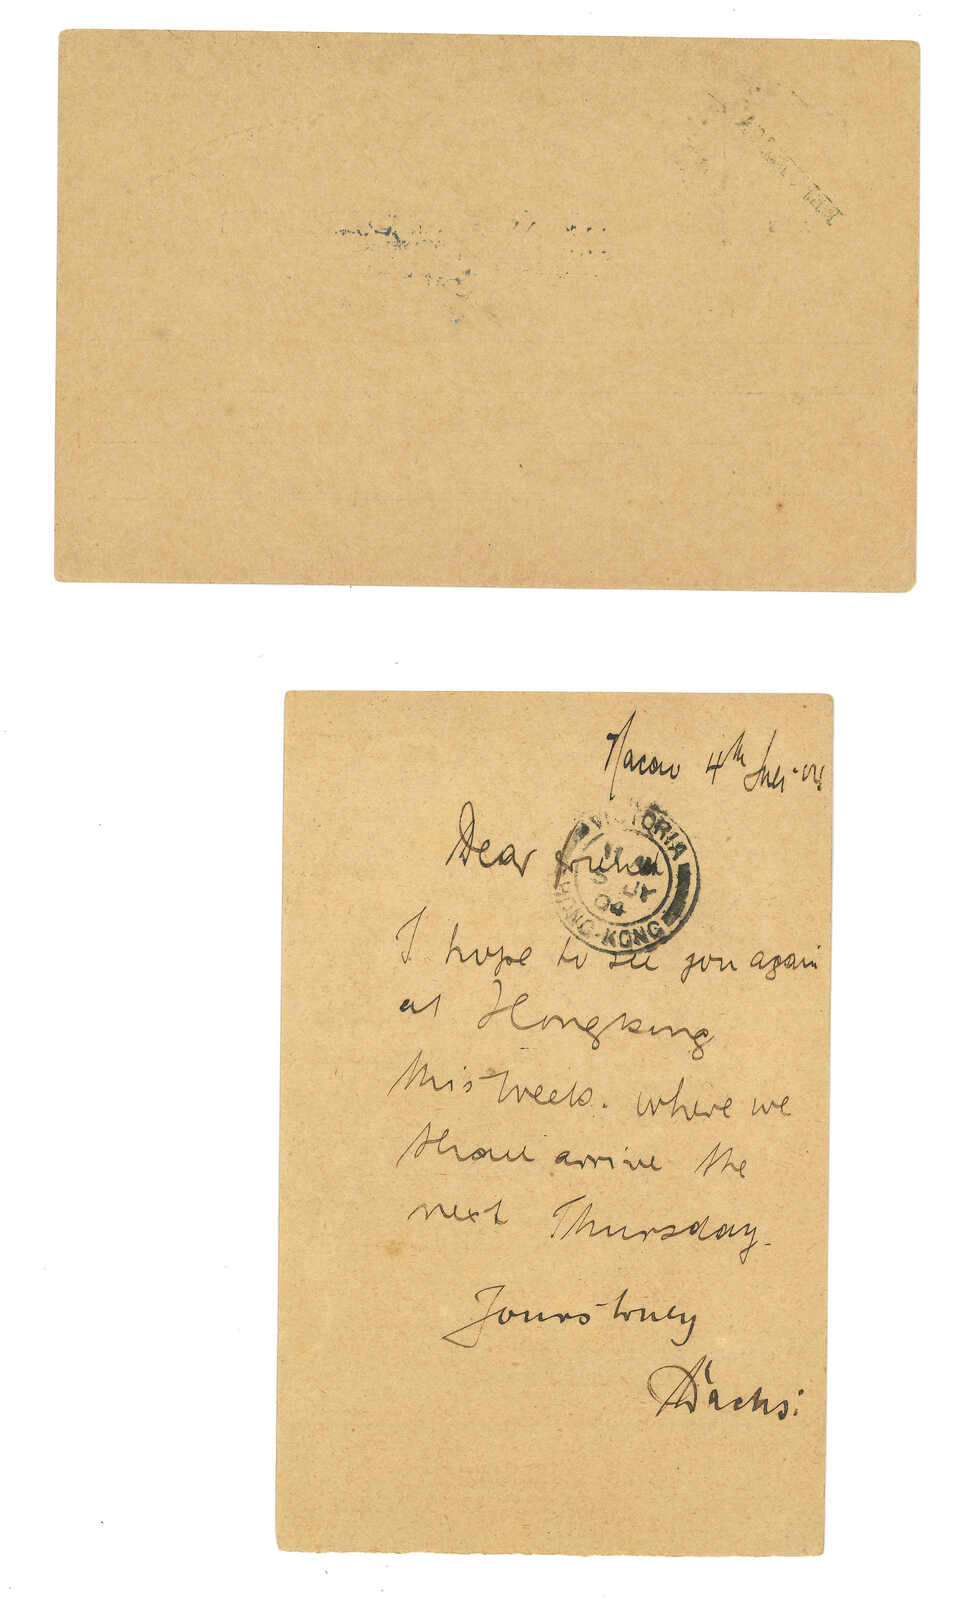 Macao 4th July 04
Dear friend
VICTORIA
5 JY
04
HONG-KONG
I hope to see you again
at Hongkong
this week. where we
shall arrive the
next Thursday.
Yours truly